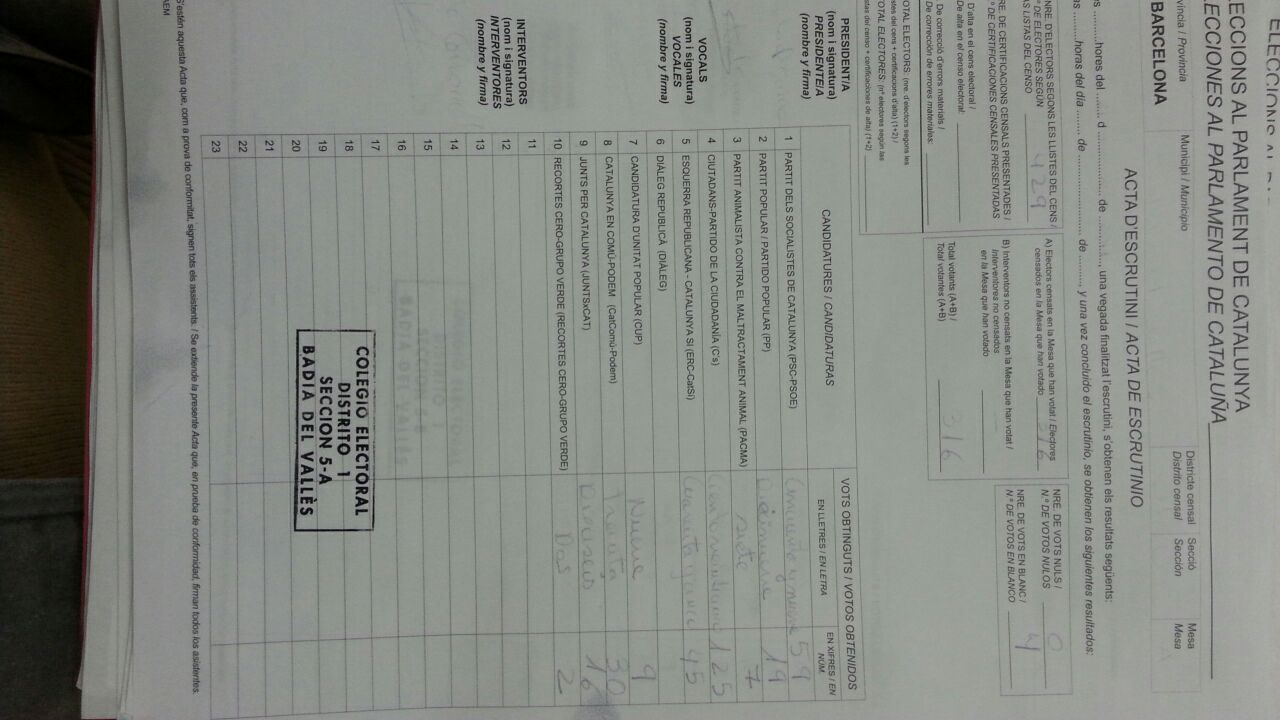 ELECCIONS AL PARLAMENT DE CATALUNYA
ELECCIONES AL PARLAMENTO DE CATALUÑA
Província / Provincia
Municipi / Municipio
Districte censal
Distrito censal
Secció
Sección
Mesa
Mesa
BARCELONA
ACTA D'ESCRUTINI / ACTA DE ESCRUTINIO
hores del ........ d ............ de ............, una vegada finalitzat l'escrutini, s'obtenen els resultats següents:
horas del día ........ de ............ de ........ y una vez concluido el escrutinio, se obtienen los siguientes resultados:
NRE. D'ELECTORS SEGONS LES LLISTES DEL CENS /
N.º DE ELECTORES SEGÚN
LAS LISTAS DEL CENSO
429
NRE. DE CERTIFICACIONS CENSALS PRESENTADES /
N.º DE CERTIFICACIONES CENSALES PRESENTADAS
D'alta en el cens electoral /
De alta en el censo electoral:
De correcció d'errors materials /
De corrección de errores materiales:
TOTAL ELECTORS: (nre. d'electors segons les
llistes del cens + certificacions d'alta) (1+2) /
TOTAL ELECTORES: (n.º electores según las
listas del censo + certificaciones de alta) (1+2)
A) Electors censats en la Mesa que han votat / Electores
censados en la Mesa que han votado 316
B) Interventors no censats en la Mesa que han votat /
Interventores no censados
en la Mesa que han votado
Total votants (A+B) /
Total votantes (A+B) 316
NRE. DE VOTS NULS /
N.º DE VOTOS NULOS 0
NRE. DE VOTS EN BLANC /
N.º DE VOTOS EN BLANCO 4
CANDIDATURES / CANDIDATURAS
VOTS OBTINGUTS / VOTOS OBTENIDOS
EN LLETRES / EN LETRA
EN XIFRES / EN NÚM.
1 PARTIT DELS SOCIALISTES DE CATALUNYA (PSC-PSOE) Cincuenta y nueve 59
2 PARTIT POPULAR / PARTIDO POPULAR (PP) Diecinueve 19
3 PARTIT ANIMALISTA CONTRA EL MALTRACTAMENT ANIMAL (PACMA) siete 7
4 CIUTADANS-PARTIDO DE LA CIUDADANÍA (C's) 125
5 ESQUERRA REPUBLICANA - CATALUNYA SÍ (ERC-CatSí) 45
6 DIÀLEG REPUBLICÀ (DIÀLEG)
7 CANDIDATURA D'UNITAT POPULAR (CUP) Nueve 9
8 CATALUNYA EN COMÚ-PODEM (CatComú-Podem) Treinta 30
9 JUNTS PER CATALUNYA (JUNTSxCAT) 16
10 RECORTES CERO-GRUPO VERDE (RECORTES CERO-GRUPO VERDE) Dos 2
11
12
13
14
15
16
17
18
19
20
21
22
23
PRESIDENT/A
(nom i signatura)
PRESIDENTE/A
(nombre y firma)
VOCALS
(nom i signatura)
VOCALES
(nombre y firma)
INTERVENTORS
(nom i signatura)
INTERVENTORES
(nombre y firma)
COLEGIO ELECTORAL
DISTRITO 1
SECCION 5-A
BADIA DEL VALLÈS
S'estén aquesta Acta que, com a prova de conformitat, signen tots els assistents. / Se extiende la presente Acta que, en prueba de conformidad, firman todos los asistentes.